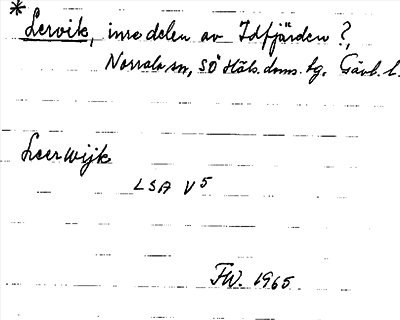 * Lervik, inre delen av Idfjärden?,
Norrala sn, SÖ Häls. doms. tg. Gävl. l.
Leerwijk
LSA V5
FW. 1965